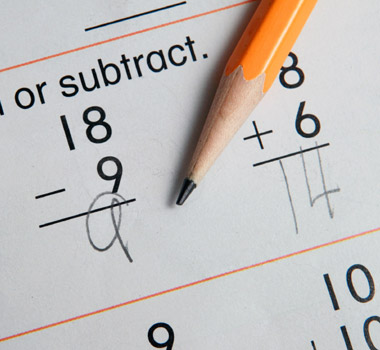 or subtract.
18
- 9
9
8
+ 6
14
9
10
10